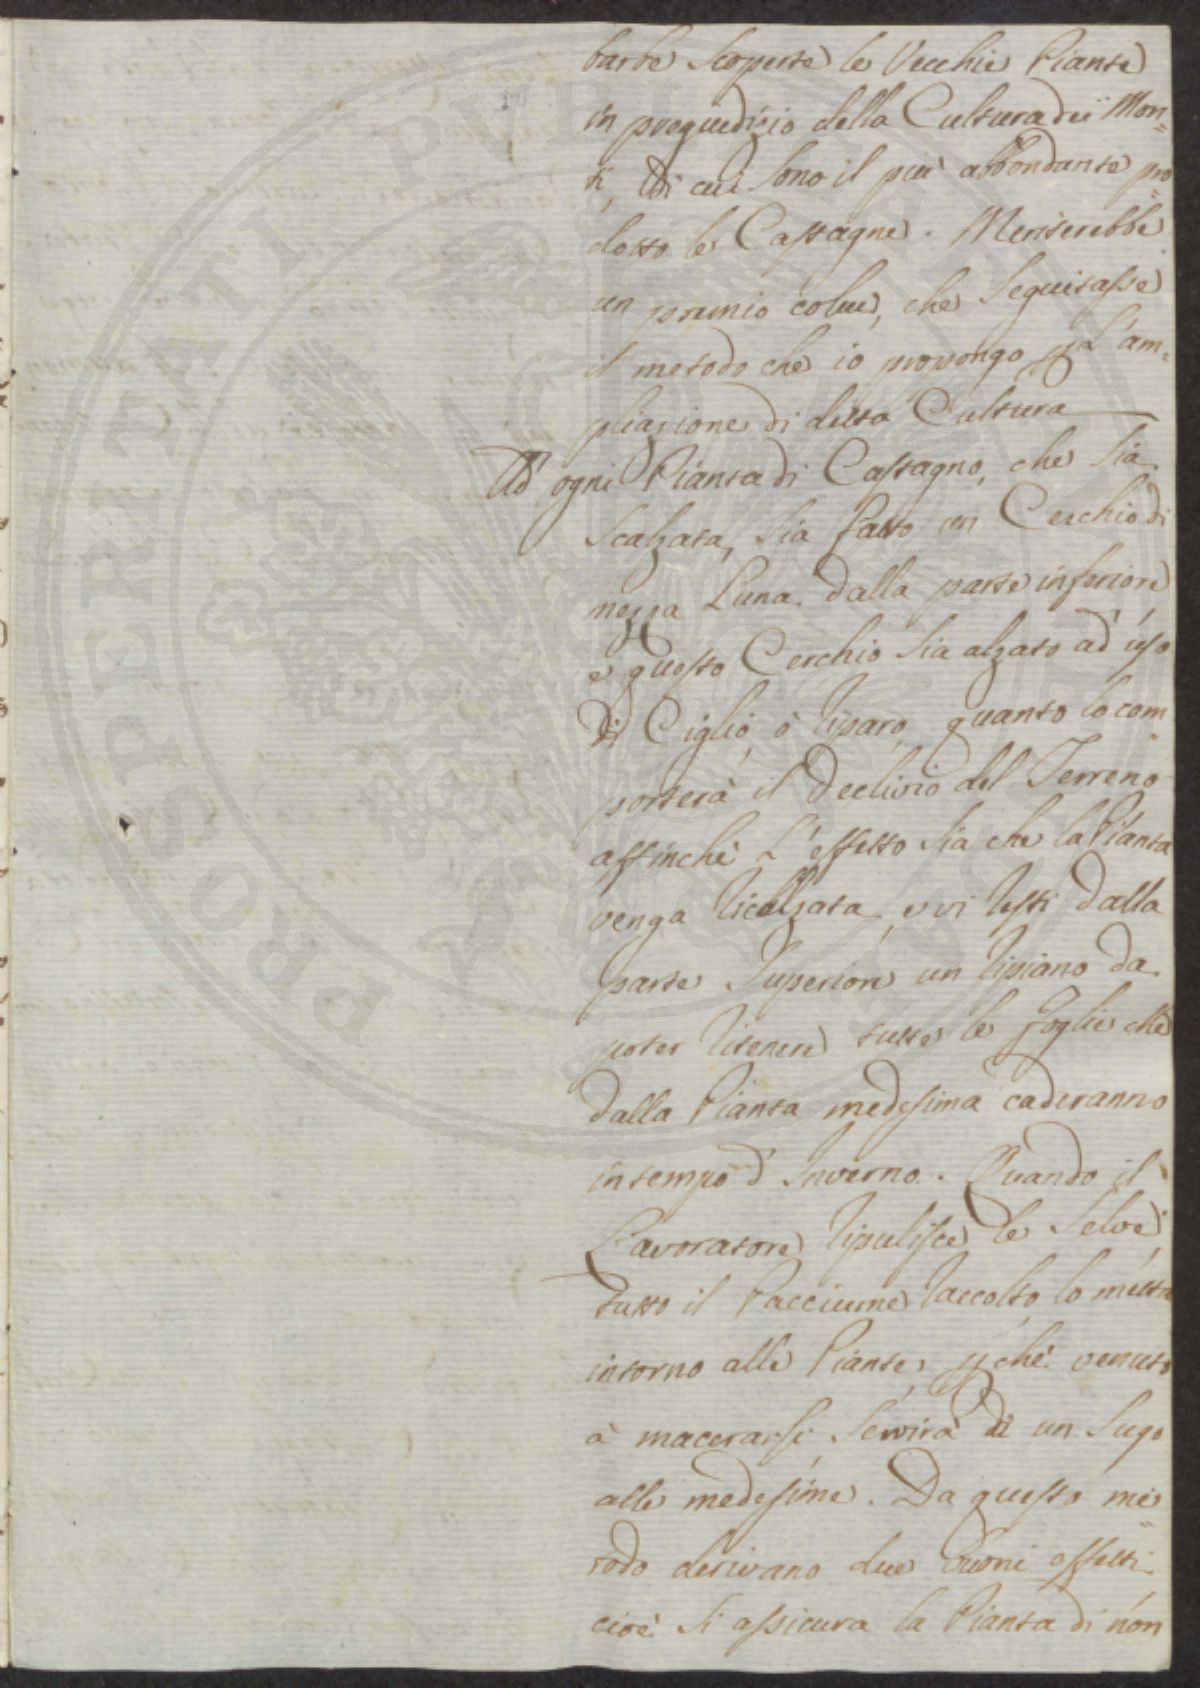 barbe scoperte le Vecchie Piante
in pregiudizio della Cultura dei Mon=
ti, di cui sono il più abbondante pro=
dotto le Castagne. Meriterebbe
un premio colui, che seguitasse
il metodo che io propongo p L'am=
pliazione di detta Cultura
Ad ogni Pianta di Castagno, che sia
scalzata, sia fatto un Cerchio di
mezza Luna dalla parte inferiore
e questo Cerchio sia alzato ad uso
di Ciglio, ò riparo, quanto lo com=
porterà il Declivio del Terreno
affinchè L'effetto sia che la Pianta
venga ricalzata, e vi resti dalla
parte superiore un ripiano da
poter ritenere tutte le foglie che
dalla Pianta medesima caderanno
in tempo d'Inverno. Quando il
Lavoratore ripulisce le Selve
tutto il Pacciume raccolto lo metta
intorno alle Piante, pchè venuto
à macerarsi servirà di un sugo
alle medesime. Da questo me=
todo derivano due buoni effetti
cioè si assicura la Pianta di non
PROSPERITATI PUBLICAE